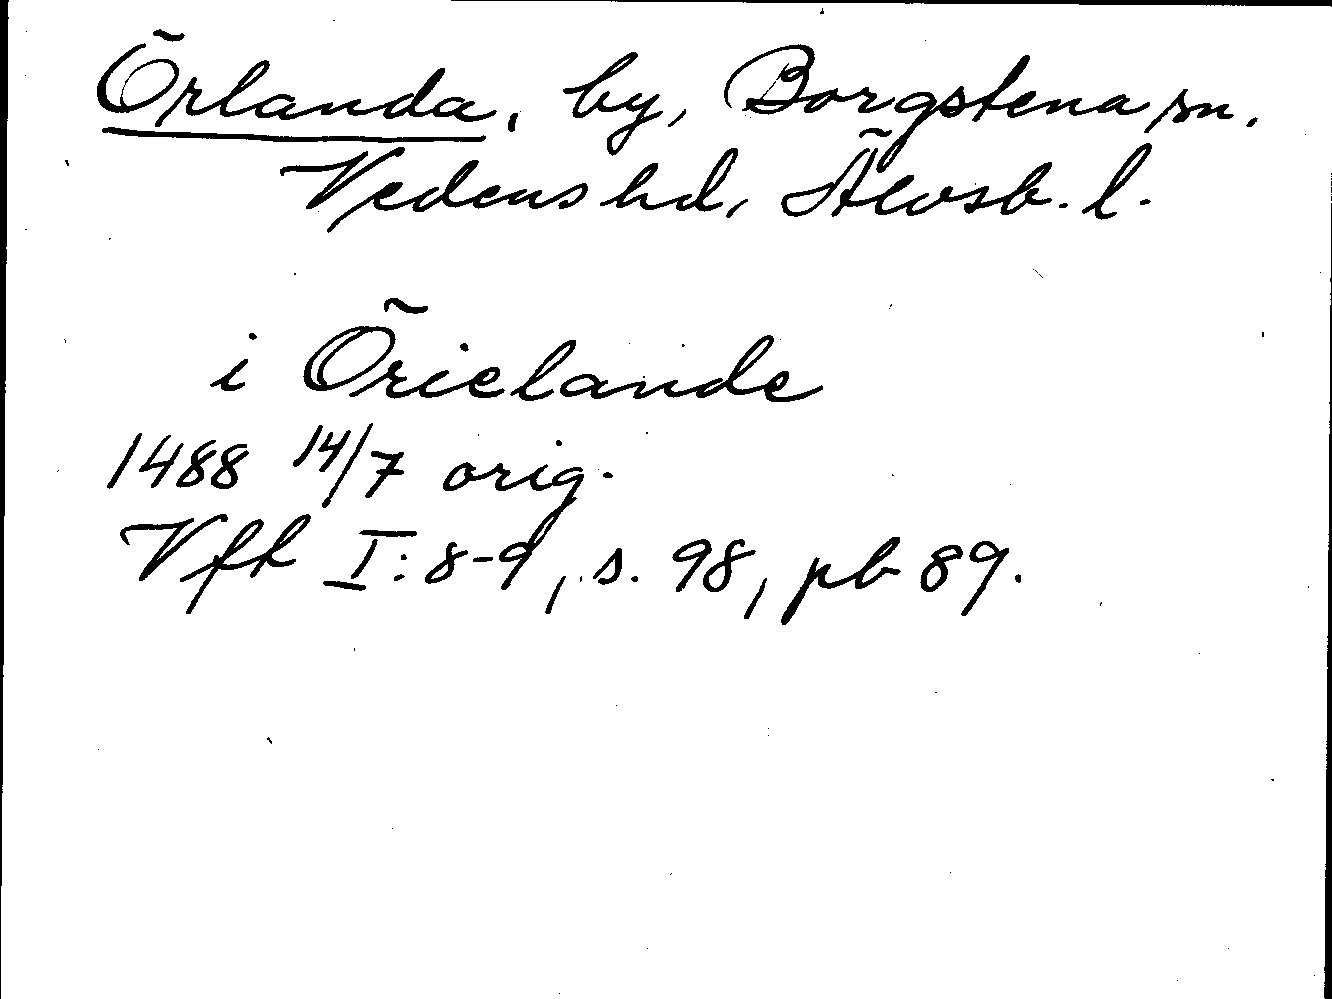 Örlanda, by, Borgstena sn.
Vedens hd, Älvsb. l.
i Örielande
1488 14/7 orig.
Vfh I:8-9, s. 98, pb 89.